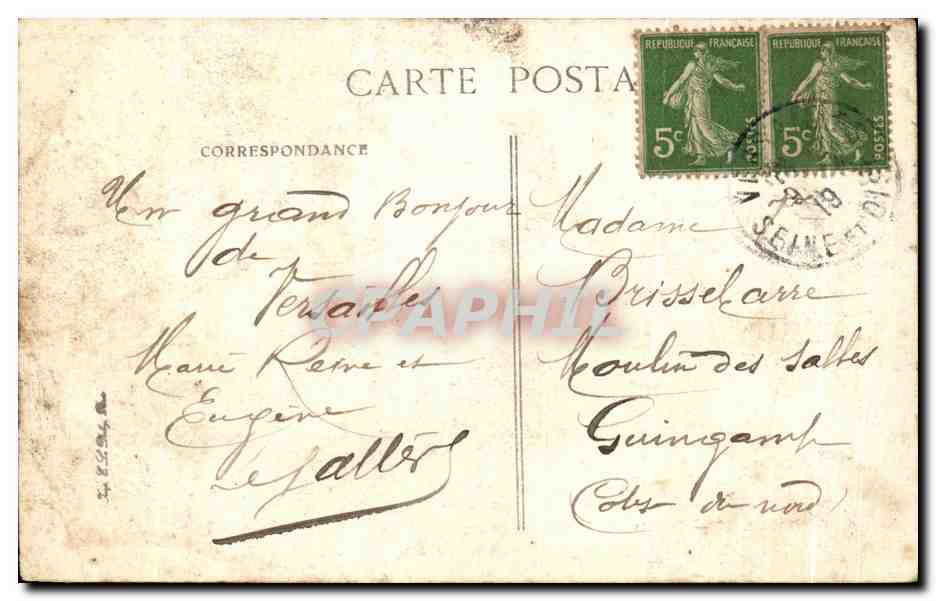 CARTE POSTA
RÉPUBLIQUE FRANÇAISE
5c
POSTES
RÉPUBLIQUE FRANÇAISE
5c
POSTES
19
SEINE-ET-OISE
CORRESPONDANCE
Un grand Bonjour
de
Versailles
Marie Reine et
Eugène
Le Sallér
Madame
Brissel
Moulin des Salles
Guingamp
Côtes du nord
CPAPHIL